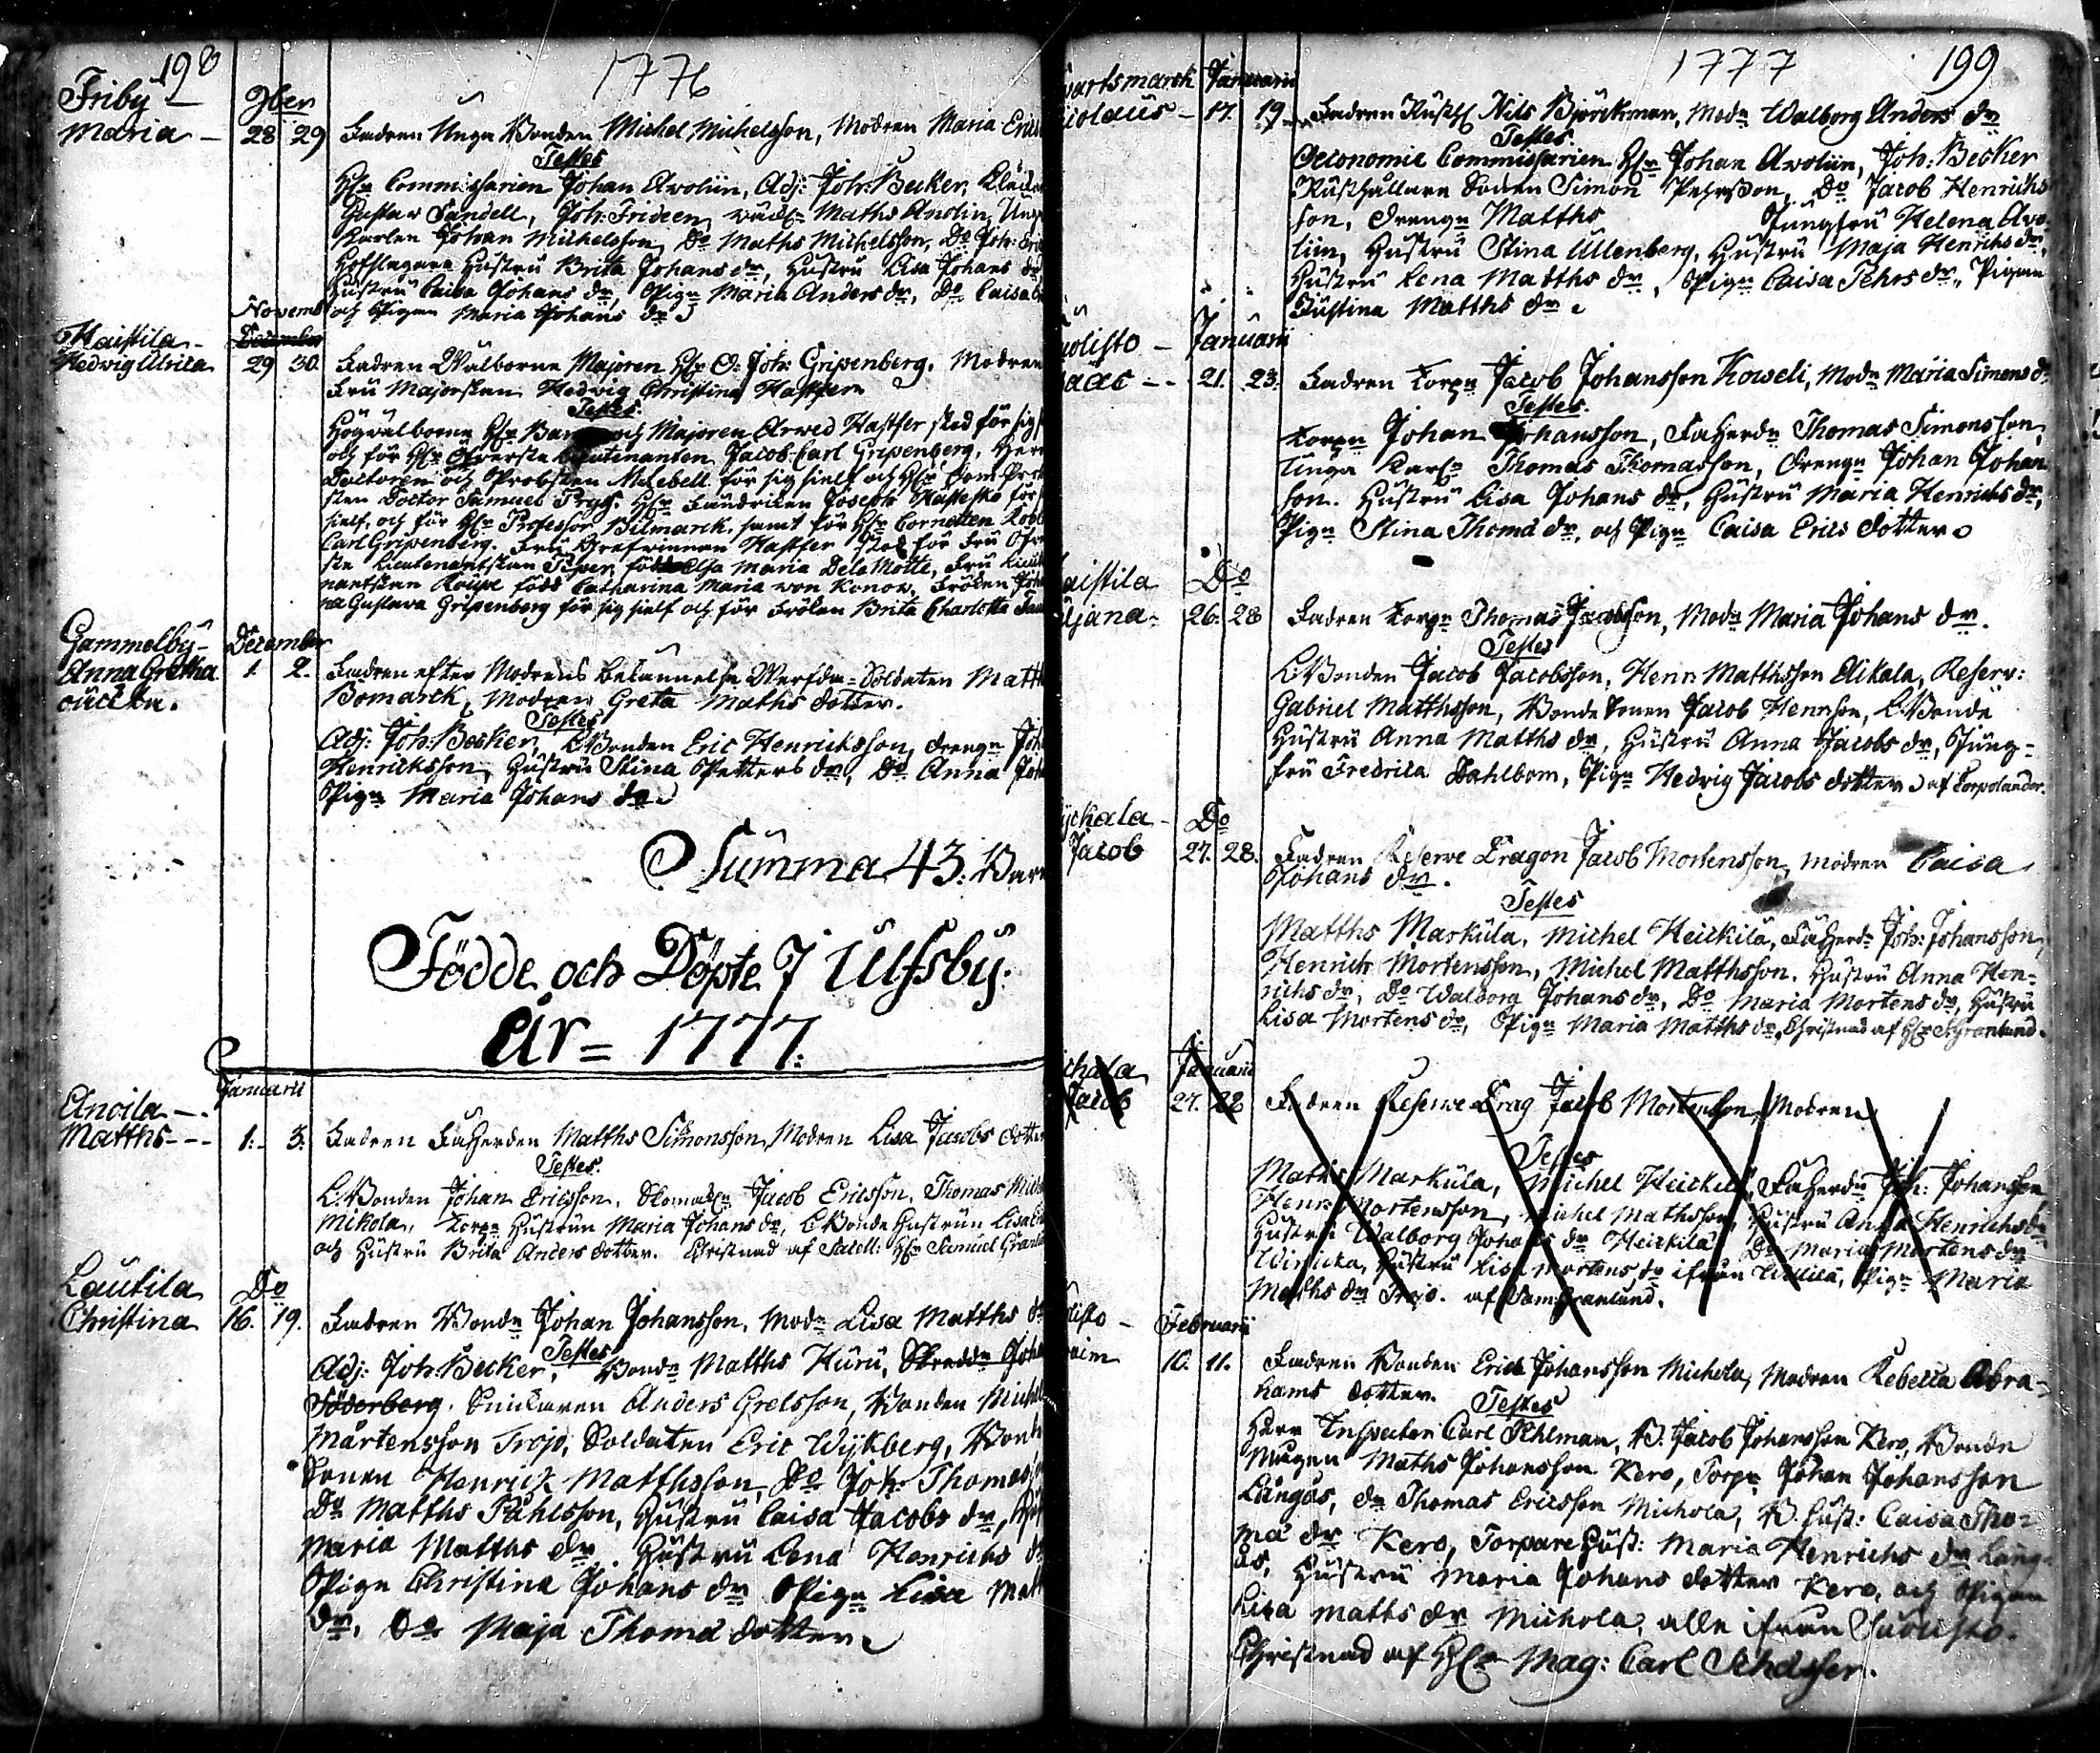 198
1776
Friby
9ber
Maria - 28 29 Fadren Unga Bonden Michel Michelsson, Modren Maria Erics
Testes
H:r Commissarien Johan Avolin, Adj: Joh: Becker,
Gustav Sandell, Joh: Frideen, Maths Anolin, Unge
Karlen Johan Michelsson, D:o Maths Michelsson, D:o Joh: Eric
Hofslagare Hustru Brita Johans dr, Hustru Lisa Johans dr
Hustru Caisa Johans dr, Pig:n Maria Anders dr, D:o Caisa
och Pigan Maria Johans dr
Novemb
Haistila - December
Hedwig Ulrica 29 30. Fadren Wälborne Majoren H:r O: Joh: Gripenberg, Modren
Fru Majorskan Hedvig Christina Hastfer
Testes
Högvälborne H:r och Majoren Arwed Hastfer stod för sig
och för H:r Öfverste Lieutinanten Jacob Carl Gripenberg, Herr
Doctoren och Probsten Mebell för sig sielf och H:r Dom Pro
sten Doctor Samuel Pryss, H:r Fändricken Joseph för
sielf, och för H:r Professor Bilmarck, samt för H:r Cornetten
Carl Gripenberg. Fru Grefvinnan Hastfer stod för Fru Öfver
ste Lieutenantskan född Elsa Maria De la Motte, Fru Lieut
nantskan född Catharina Maria von Konow, Fröken Joha
na Gustava Gripenberg för sig sielf och för Fröken Brita Charlotta
Gammelby - December
Anna Gretha 1. 2. Fadren efter Modrens bekännelse Soldaten Matth
oäckta. Bomarck, Modren Greta Maths dotter.
Testes
Adj: Joh: Becker, L. Bonden Eric Henricksson, dreng:n Joh
Henricksson, Hustru Stina Petters dr, D:o Anna Joh
Pig:n Maria Johans dr
Summa 43. Barn
Födde och Döpte I Ulfsby.
År = 1777.
Januarii
Anoila -
Matths - - - 1. 3. Fadren Faherden Matths Simonsson, Modren Lisa Jacobs dotter
Testes.
L. Bonden Johan Ericsson, Jacob Ericsson, Thomas
Mikola, Torp:n Hustrun Maria Johans dr, L. Bonde Hustrun Lisa
och Hustru Brita Anders dotter. Christnad af Sacell: H:r Samuel Granlund
Lautila D:o
Christina 16. 19. Fadren Bond:n Johan Johansson, Mod:n Lisa Matths dr
Testes
Adj: Joh: Becker, Bond:n Matths Kuru, Skredd:n Johan
Söderberg, Snickaren Anders Grelsson, Bonden Michel
Mårtensson Trojo, Soldaten Eric Wykberg, Bonde
Sonen Henrick Matthsson, D:o Joh: Thomasson
D:o Matths Påhlsson, Hustru Caisa Jacobs dr,
Maria Matths dr, Hustru Lena Henrichs dr
Pign Christina Johans dr Pig:n Lisa Matt
dr, D:o Maja Thoma dotter
1777
199
vartsmarck Januarii
icolaus - 17. 19. Fadren Nils Björckman, Mod:n Walborg Anders dr
Testes
Oeconomie Commissarien H:r Johan Avolin, Joh: Becker
Rusthållare Sonen Simon Pehrsson, D:o Jacob Henrichs
son, dreng:n Matths Jungfru Helena Avo
lin, Hustru Stina Ullenberg, Hustru Maja Henrichs dr,
Hustru Lena Matths dr, Pig:n Caisa Pehrs dr, Pigan
Justina Matths dr
uolisto - Januarii
saac - - 21. 23. Fadren Torp:n Jacob Johansson Koweli, Mod:n Maria Simons dr
Testes.
Torp:n Johan Johansson, Faherd:n Thomas Simonsson,
Unga Karl:n Thomas Thomasson, dreng:n Johan Johan
son. Hustru Lisa Johans dr, Hustru Maria Henrichs dr,
Pig:n Stina Thoma dr, och Pig:n Caisa Erics dotter
aistila D:o
jana - 26. 28 Fadren Torp:n Thomas Jacobsson, Mod:n Maria Johans dr.
Testes
L. Bonden Jacob Jacobsson, Henr: Matthsson Äikala, Reserv:
Gabriel Matthsson, Bonde Sonen Jacob Henrsson, L. Bonde
Hustru Anna Matths dr, Hustru Anna Jacobs dr, Jung=
fru Fredrica Dahlbom, Pig:n Hedvig Jacobs dotter
ychala - D:o
Jacob 27. 28. Fadren Reserve Dragon Jacob Mortensson, Modren Caisa
Johans dr.
Testes
Matths Markula, Michel Heickila, Faherd:n Joh: Johansson,
Henrich Mortensson, Michel Matthsson. Hustru Anna Hen=
richs dr, D:o Walborg Johans dr, D:o Maria Mortens dr, Hustru
Lisa Mortens dr, Pig:n Maria Matths dr, Christnad af H:r S: Granlund.
chala Januarii
Jacob 27. 28 Fadren Reserve Drag Jacob Mortensson, Modren
Testes
Maths Markula, Michel Heickel, Faherd:n Joh: Johansson
Henr: Mortensson, Michel Mathsson, Hustru Anna Henrichs dr
Hustru Walborg Johans dr Heickila D:o Maria Mortens dr
Hustru Lisa Mortens dr ifrån Pig:n Maria
Maths dr Trojo. af Sam: Granlund.
listo - Februarii
10. 11. Fadren Bonden Erick Johansson Michola, Modren Rebecca Abra=
hams dotter. Testes
Herr Inspector Carl Ahlman, B. Jacob Johansson Kero, Bonde
Mågen Maths Johansson Kero, Torp:n Johan Johansson
Långås, dr Thomas Ericsson Michola, B. hust: Caisa Tho=
ma dr Kero, Torpare Hust: Maria Henrichs dr Lång
ås, Hustru Maria Johans dotter Kero, och Pigan
Lisa Maths dr Michola, alle ifrån Suolisto.
Christnad af H:r Mag: Carl